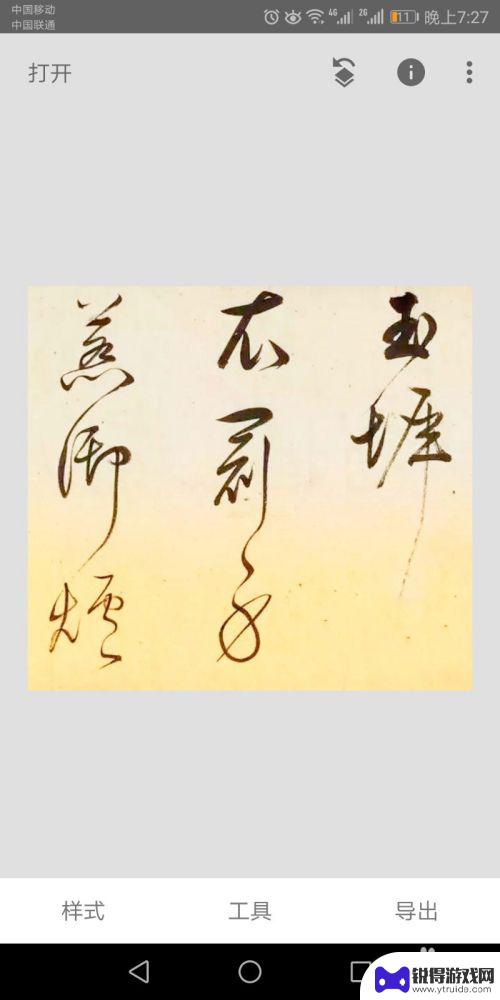 中国移动
中国联通
4G
2G
11
晚上7:27
打开
玉堀
衣羁
羔御爐
样式
工具
导出
锐得游戏网
www.ytruida.com